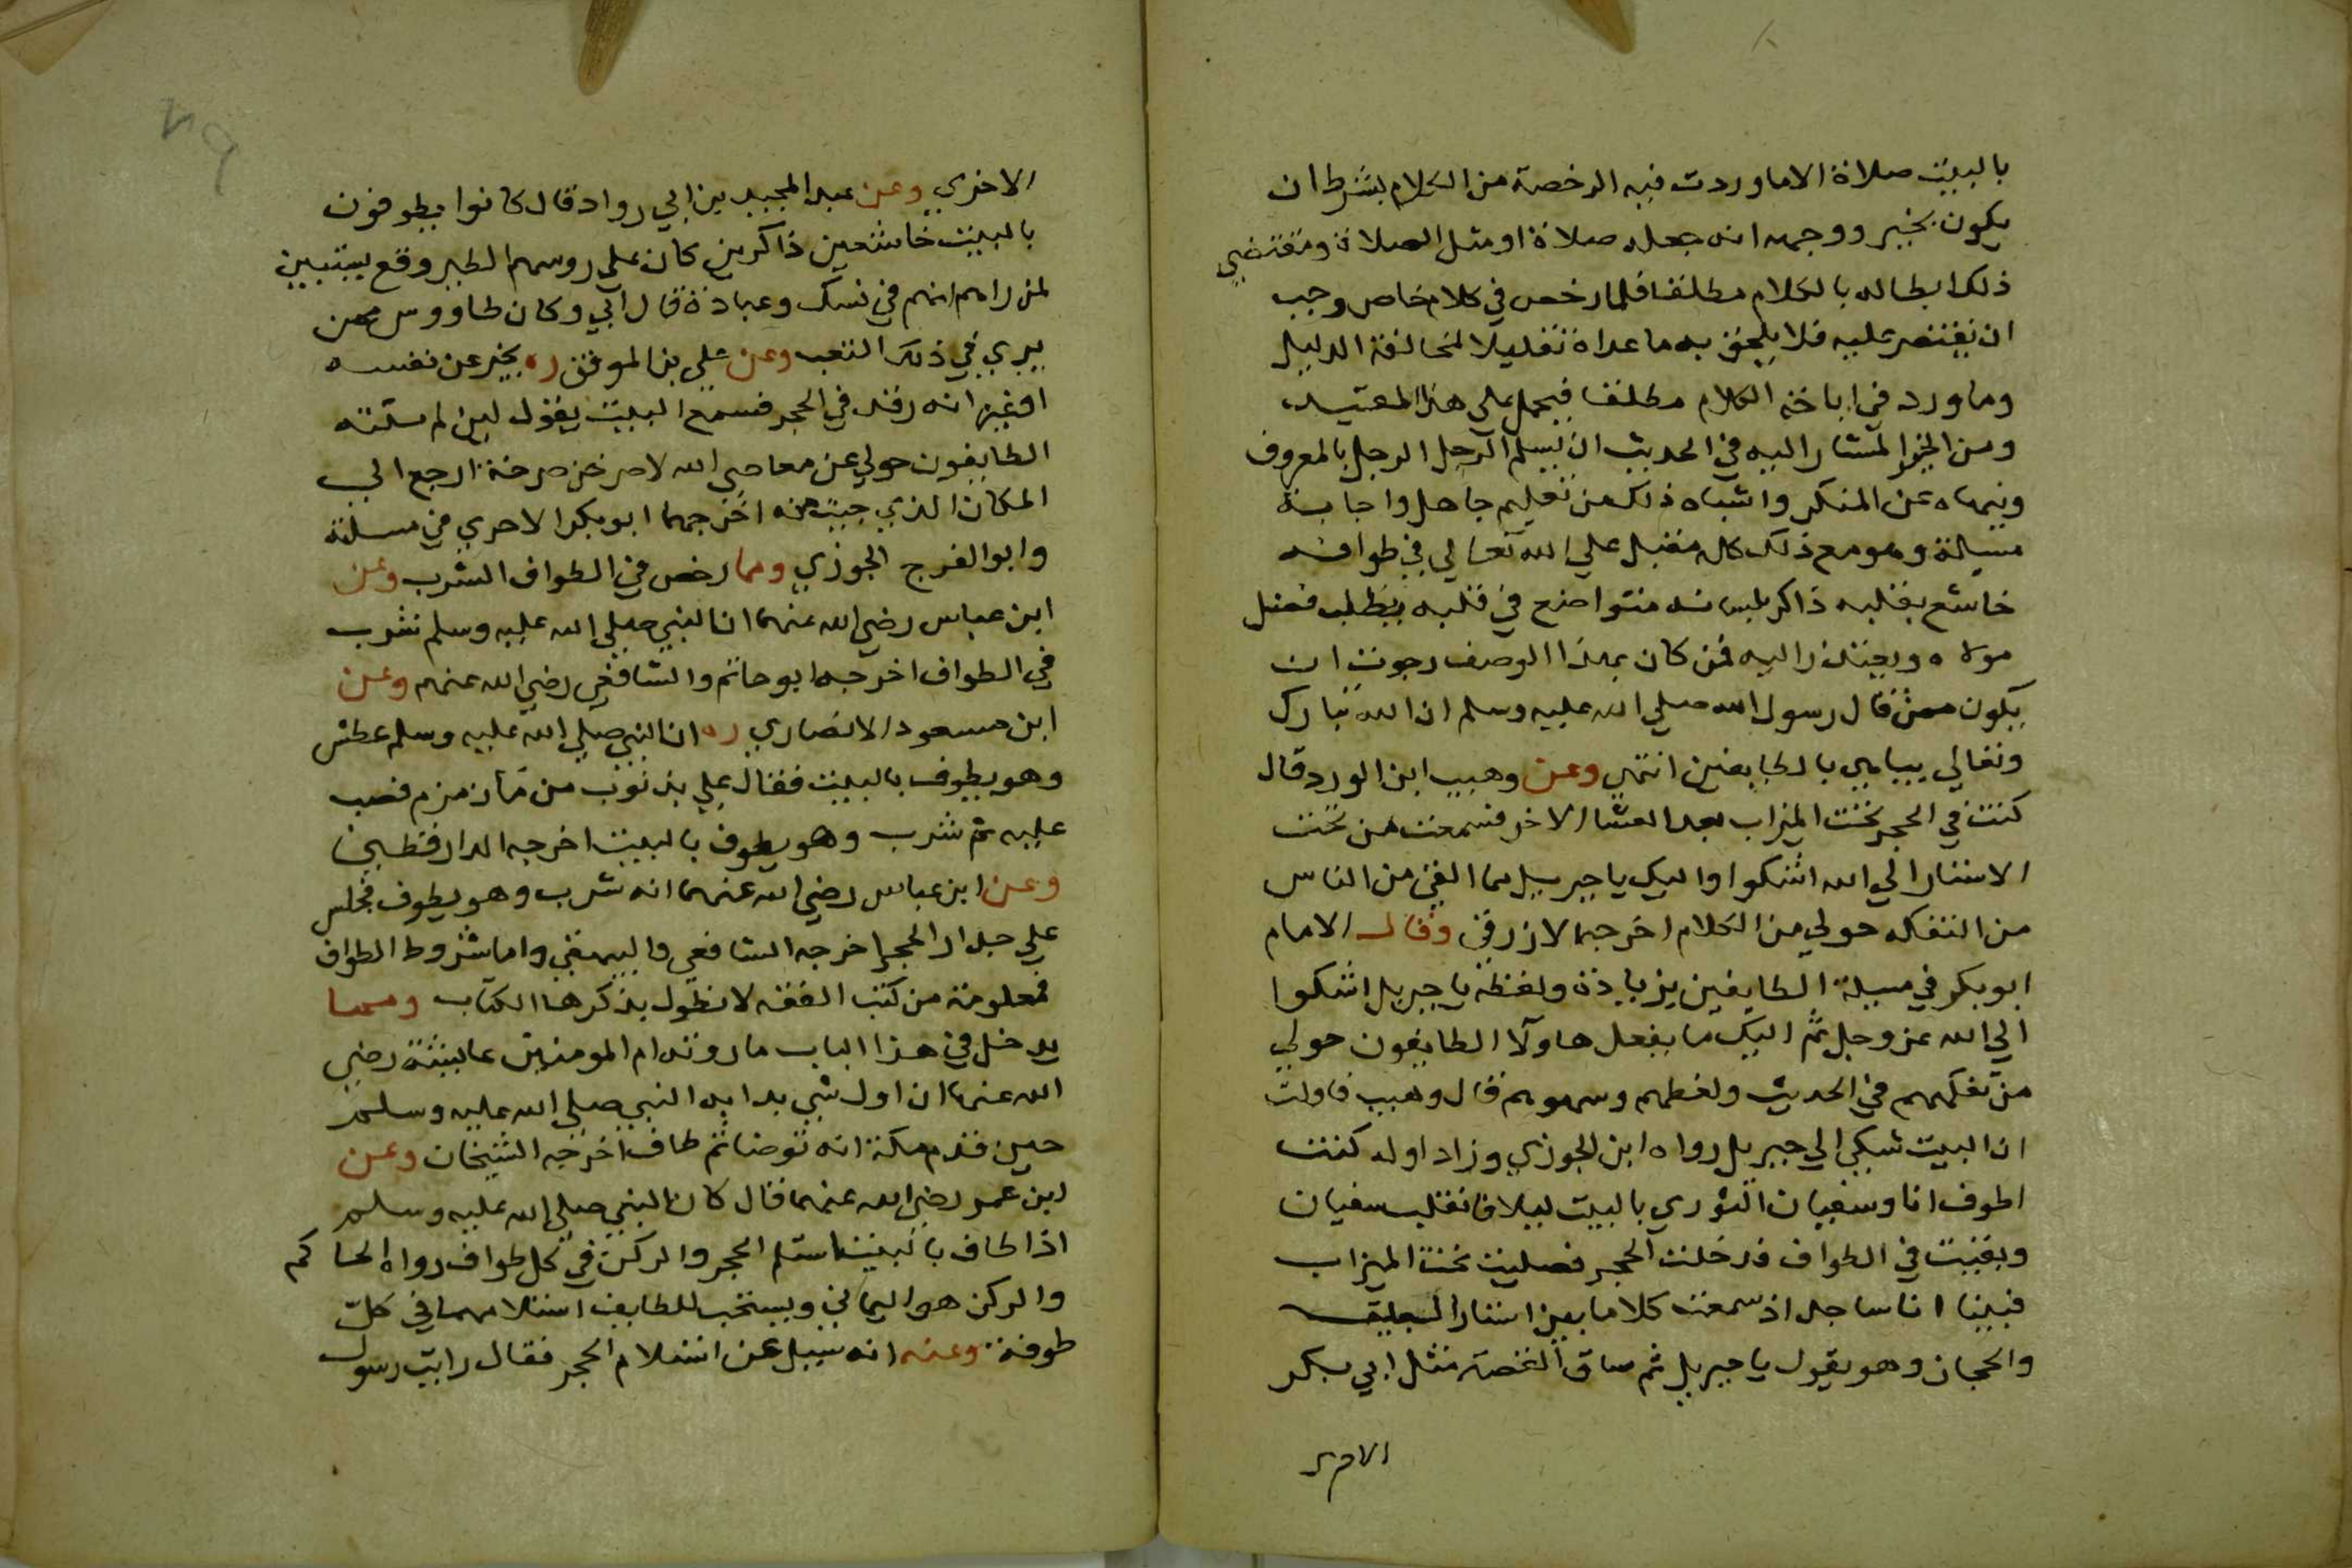 بالبيت صلاة الا ما وردت فيه الرخصة من الكلام بشرط ان
يكون بخير ووجهه انه جعله صلاة او مثل الصلاة ومقتضي
ذلك ابطاله بالكلام مطلقا فلما رخص في كلام خاص وجب
ان يقتصر عليه فلا يلحق به ما عداه تقليلا لمخالفة الدليل
وما ورد في اباحة الكلام مطلقا فيحمل علي هذا المقيد
ومن الخير المشار اليه في الحديث ان يسلم الرجل الرجل بالمعروف
وينهاه عن المنكر واشباه ذلك من تعليم جاهل واجابة
مسيلة وهو مع ذلك كله مقبل علي الله تعالي في طوافه
خاشع بقلبه ذاكر بلسانه متواضع في قلبه يطلب فضل
مولاه ويعتذر اليه فمن كان بهذا الوصف رجوت ان
يكون ممن قال رسول الله صلي الله عليه وسلم ان الله تبارك
وتعالي يباهي بالطايفين انتهي وعن وهيب ابن الورد قال
كنت في الحجر تحت الميزاب بعد العشا الاخر فسمعت من تحت
الاستار الي الله اشكوا واليك يا جبريل ما القي من الناس
من التفكه حولي من الكلام اخرجه الازرقي وقال الامام
ابو بكر في مسيلة الطايفين بزيادة ولفظه يا جبريل اشكوا
الي الله عز وجل ثم اليك ما يفعل هاولا الطايفون حولي
من تفكههم في الحديث ولغطهم وسهوهم قال وهيب فاولت
ان البيت شكي الي جبريل رواه ابن الجوزي وزاد اوله كنت
اطوف انا وسفيان الثوري بالبيت ليلا فانقلب سفيان
وبقيت في الطواف فدخلت الحجر فصليت تحت الميزاب
فبينا انا ساجد اذ سمعت كلاما بين استار البيت
والحجان وهو يقول يا جبريل ثم ساق القصة مثل ابي بكر
الاجري
الاخري وعن عبد المجيد بن ابي رواد قال كانوا يطوفون
بالبيت خاشعين ذاكرين كان علي روسهم الطير وقع يستبين
لمن راهم انهم في نسك وعبادة قال ابي وكان طاووس ممن
يري في ذلك التعب وعن علي بن الموفق ره يخبر عن نفسه
او غيره انه رقد في الحجر فسمع البيت يقول لين لم ينته
الطايفون حولي عن معاصي الله لاصرخن صرخة ارجع الي
المكان الذي جيت منه اخرجهما ابو بكر الاجري في مسلته
وابو الفرج الجوزي ومما رخص في الطواف الشرب وعن
ابن عباس رضي الله عنهما ان النبي صلي الله عليه وسلم شرب
في الطواف اخرجه ابو حاتم والشافعي رضي الله عنهم وعن
ابن مسعود الانصاري ره ان النبي صلي الله عليه وسلم عطش
وهو يطوف بالبيت فقال علي بذنوب من ما زمزم فصب
عليه ثم شرب وهو يطوف بالبيت اخرجه الدارقطني
وعن ابن عباس رضي الله عنهما انه شرب وهو يطوف فجلس
علي جدار الحجر اخرجه الشافعي والبيهقي واما شروط الطواف
فمعلومة من كتب الفقه لا نطول بذكرها الكتاب ومما
يدخل في هذا الباب ما روته ام المومنين عايشة رضي
الله عنها ان اول شي بدا به النبي صلي الله عليه وسلم
حين قدم مكة انه توضا ثم طاف اخرجه الشيخان وعن
ابن عمر رضي الله عنهما قال كان النبي صلي الله عليه وسلم
اذا طاف بالبيت استلم الحجر والركن في كل طواف رواه الحاكم
والركن هو اليماني ويستحب للطايف استلامهما في كل
طوفة وعنه انه سيل عن استلام الحجر فقال رايت رسول